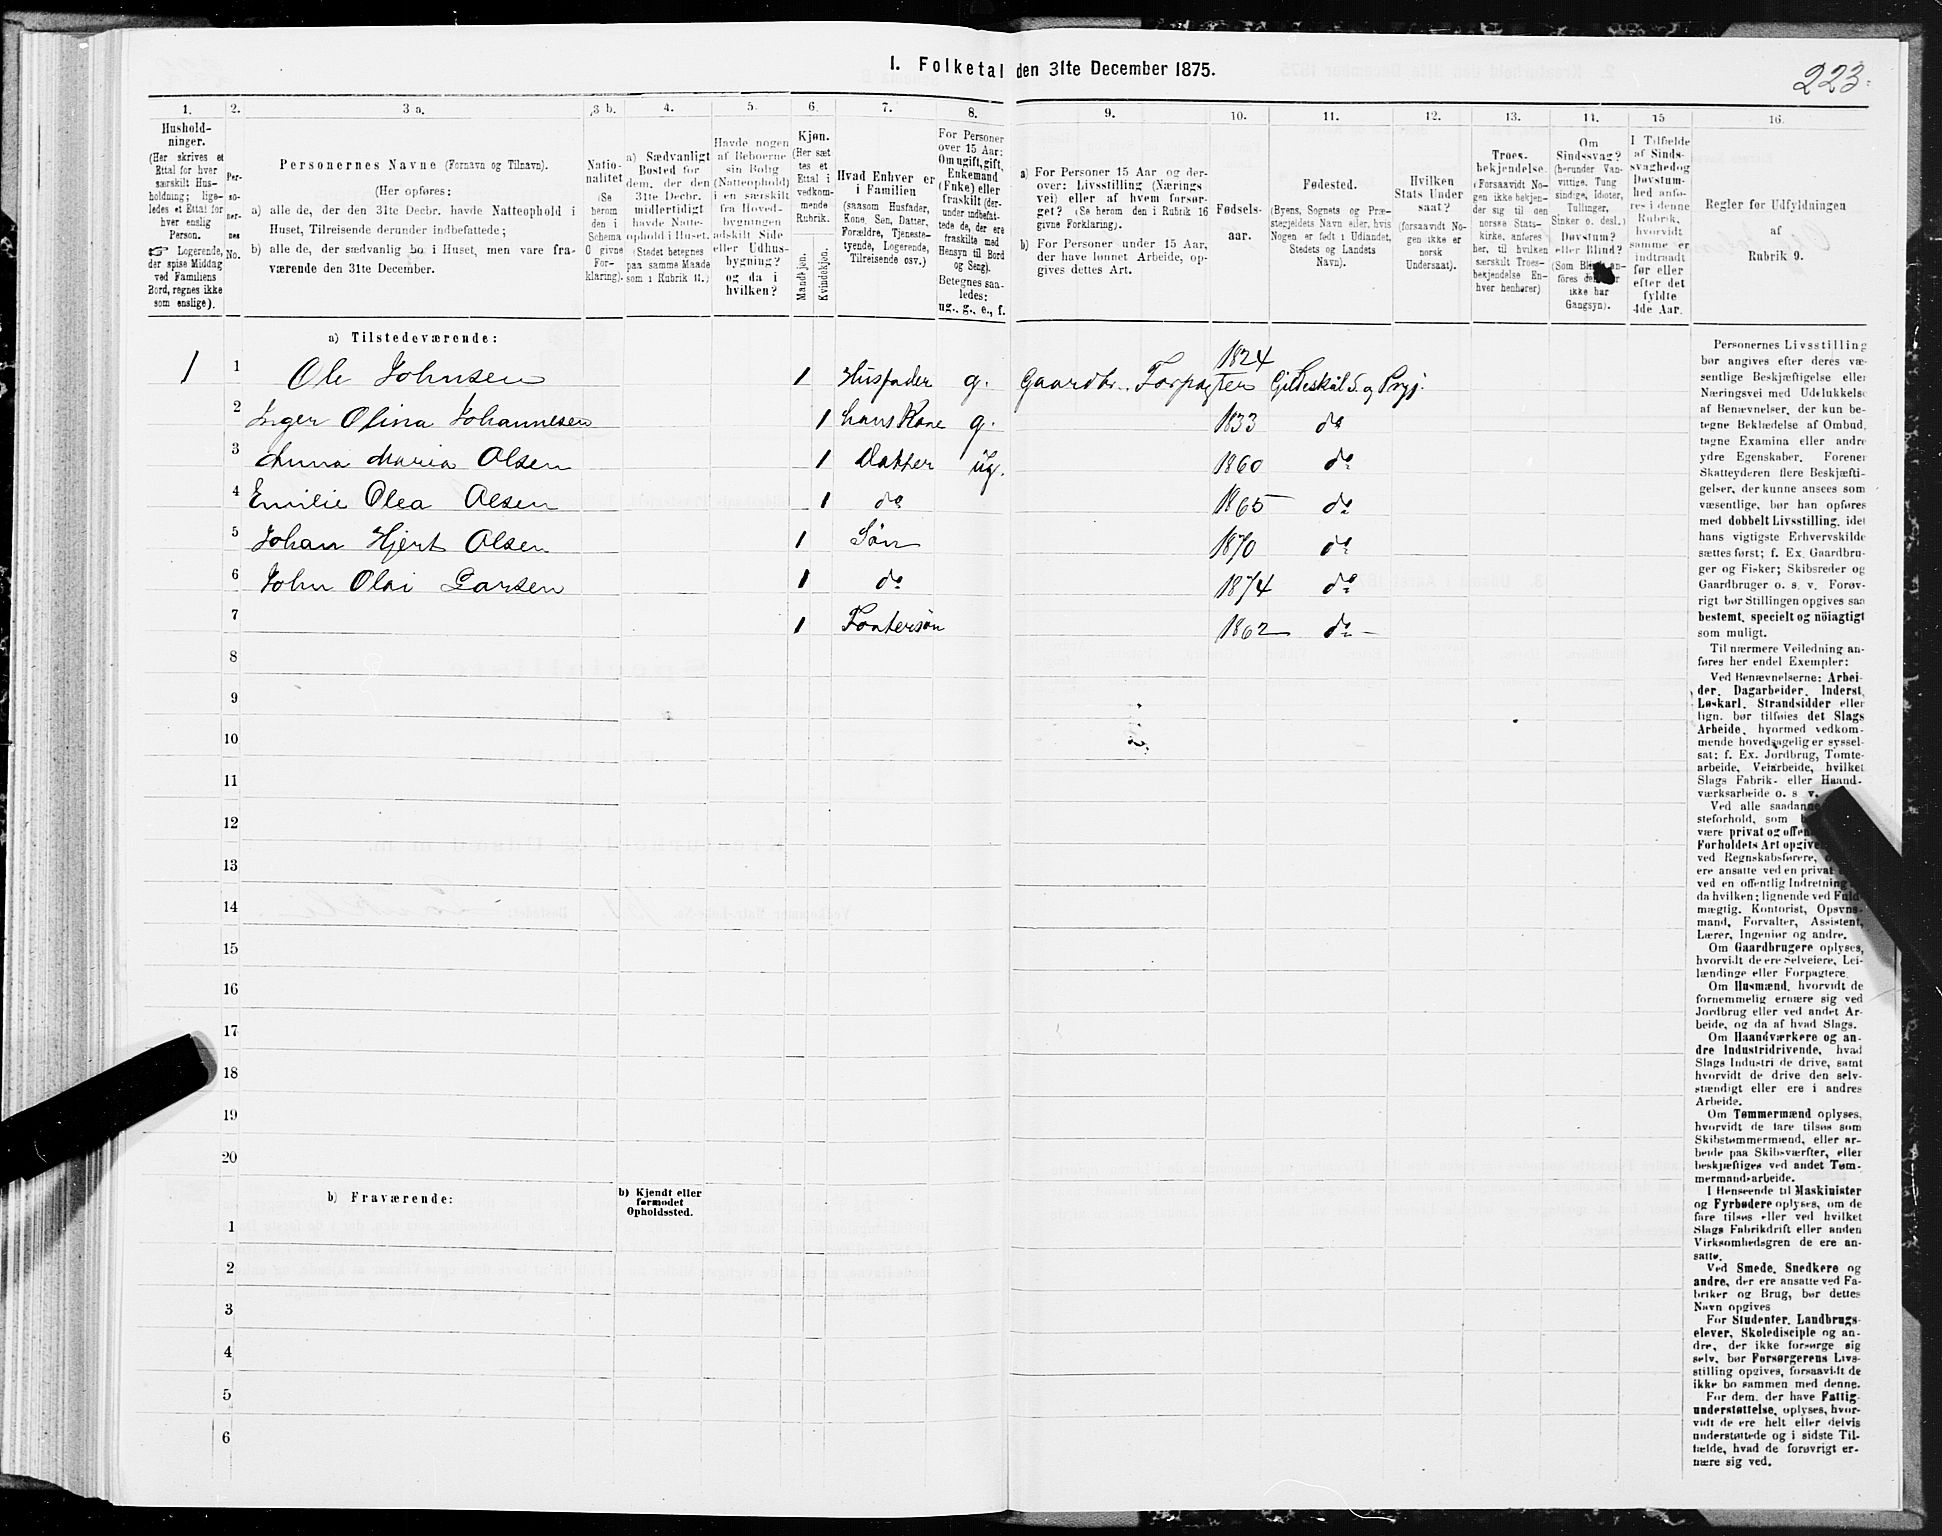 I. Folketal den 31te December 1875.
223.
1. 2. 3 a. 3 b. 4. 5. 6. 7. 8. 9. 10. 11. 12. 13. 14. 15 16.
Hushold-
ninger.
(Her skrives et
Ettal for hver
særskilt Hus-
holdning; lige-
ledes et Ettal for
hver enslig
Person.
☞ Logerende,
der spise Middag
ved Familiens
Bord, regnes ikke
som enslige).
Per-
so-
ner-
nes
No.
Personernes Navne (Fornavn og Tilnavn).
(Her opføres:
a) alle de, der den 31te Decbr. havde Natteophold i
Huset, Tilreisende derunder indbefattede;
b) alle de, der sædvanlig bo i Huset, men vare fra-
værende den 31te December.
Natio-
nalitet
(Se
herom
den i
Schema
O givne
For-
klaring).
a) Sædvanligt
Bosted for
dem, der den
31te Decbr.
midlertidigt
havde Natte-
ophold i Huset.
(Stedet betegnes
paa samme Maade
som i Rubrik 11.)
Havde nogen
af Beboerne
sin Bolig
(Natteophold)
i en særskilt
fra Hoved-
bygningen
adskilt Side
eller Udhus-
bygning?
og da i
hvilken?
Kjøn.
(Her sæt
tes et
Ettal i
vedkom-
mende
Rubrik.
Mandkjøn.
Kvindekjøn.
Hvad Enhver er
i Familien
(saasom Husfader,
Kone, Søn, Datter,
Forældre, Tjeneste-
tyende, Logerende,
Tilreisende osv.)
For Personer
over 15 Aar:
Om ugift, gift,
Enkemand
(Enke) eller
fraskilt (der-
under indbefat-
tede de, der ere
fraskilte med
Hensyn til Bord
og Seng).
Betegnes saa-
ledes:
ug., g., e., f.
a) For Personer 15 Aar og der-
over: Livsstilling (Nærings
vei) eller af hvem forsør-
get? (Se herom den i Rubrik 16
givne Forklaring).
b) For Personer under 15 Aar,
der have lønnet Arbeide, op-
gives dettes Art.
Fødsels-
aar.
Fødested.
(Byens, Sognets og Præ-
stegjeldets Navn eller, hvis
Nogen er født i Udlandet,
Stedets og Landets
Navn).
Hvilken
Stats Under
saat?
(forsaavidt No-
gen ikke er
norsk
Undersaat).
Troes-
bekjendelse.
(Forsaavidt No-
gen ikke bekjen-
der sig til den
norske Stats-
kirke, anføres
her, til hvilken
særskilt Troes-
bekjendelse En-
hver henhører)
Om
Sindssvag?
(herunder Van-
vittige, Tung
sindige, Idioter,
Tullinger,
Sinker o. desl.)
Døvstum?
eller Blind?
(Som Blinde an-
føres de, der
ikke har
Gangsyn).
I Tilfælde
af Sinds-
svaghed og
Døvstum-
hed anfø-
res i denne
Rubrik,
hvorvidt
samme er
indtraadt
før eller
efter det
fyldte
4de Aar.
Regler for Udfyldningen
af
Rubrik 9.
a) Tilstedeværende:
1 1 Ole Johnsen 1 Husfader g. Gaardbr. Forpagter 1824 Gildeskål S. og Prgj.
2 Inger Olina Johannesen 1 hans Kone g. 1833 do
3 Anna Maria Olsen 1 Datter ug. 1860 do
4 Emilie Olea Olsen 1 do 1865 do
5 Johan Hjert Olsen 1 Søn 1870 do
6 John Olai Larsen 1 do 1874 do
7 1 Fostersøn 1862 do
8
9
10
11
12
13
14
15
16
17
18
19
20
b) Fraværende:
b) Kjendt eller
formodet
Opholdssted.
1
2
3
4
5
6
Personernes Livsstilling
bør angives efter deres væ-
sentlige Beskjæftigelse eller
Næringsvei med Udelukkelse
af Benævnelser, der kun be-
tegne Beklædelse af Ombud,
tagne Examina eller andre
ydre Egenskaber. Forener
Skatteyderen flere Beskjæfti-
gelser, der kunne ansees som
væsentlige, bør han opføres
med dobbelt Livsstilling, idet
hans vigtigste Erhvervskilde
sættes først; f. Ex. Gaardbru-
ger og Fisker; Skibsreder og
Gaardbruger o. s. v. Forøv-
rigt bør Stillingen opgives saa
bestemt, specielt og nöiagtigt
som muligt.
Til nærmere Veiledning an-
føres her endel Exempler:
Ved Benævnelserne: Arbei-
der, Dagarbeider, Inderst,
Løskarl, Strandsidder eller
lign. bør tilføies det Slags
Arbeide, hvormed vedkom-
mende hovedsagelig er syssel-
sat; f. Ex. Jordbrug, Tomte-
arbeide, Veiarbeide, hvilket
Slags Fabrik- eller Haand-
værksarbeide o. s v.
Ved alle saadanne
steforhold, som
være privat og offen
Forholdets Art opgives
ved Regnskabsførere,
ere ansatte ved en privat
ved en offentlig Indretning
da hvilken; lignende ved Fuld-
mægtig, Kontorist, Opsyns-
mand, Forvalter, Assistent,
Lærer, Ingeniør og andre.
Om Gaardbrugere oplyses,
hvorvidt de ere Selveiere, Lei-
lændinge eller Forpagtere.
Om Husmænd, hvorvidt de
fornemmelig ernære sig ved
Jordbrug eller ved andet Ar-
beide, og da af hvad Slags.
Om Haandværkere og an-
dre Industridrivende, hvad
Slags Industri de drive, samt
hvorvidt de drive den selv-
stændigt eller ere i andres
Arbeide.
Om Tømmermænd oplyses,
hvorvidt de fare tilsøs som
Skibstømmermænd, eller ar-
beide paa Skibsværfter, eller
beskjæftiges ved andet Tøm-
mermandsarbeide.
I Henseende til Maskinister
og Fyrbødere oplyses, om de
fare tilsøs eller ved hvilket
Slags Fabrikdrift eller anden
Virksomhedsgren de ere an-
satte.
Ved Smede, Snedkere og
andre, der ere ansatte ved Fa-
briker og Brug, bør dettes
Navn opgives
For Studenter, Landbrugs-
elever, Skoledisciple og an-
dre, der ikke forsørge sig
selv, bør Forsørgerens Livs-
stilling opgives, forsaavidt de
ikke bo sammen med denne.
For dem, der have Fattig-
understøttelse, oplyses, hvor-
vidt de ere helt eller delvis
understøttede og i sidste Til-
fælde, hvad de forøvrigt er-
nære sig ved.